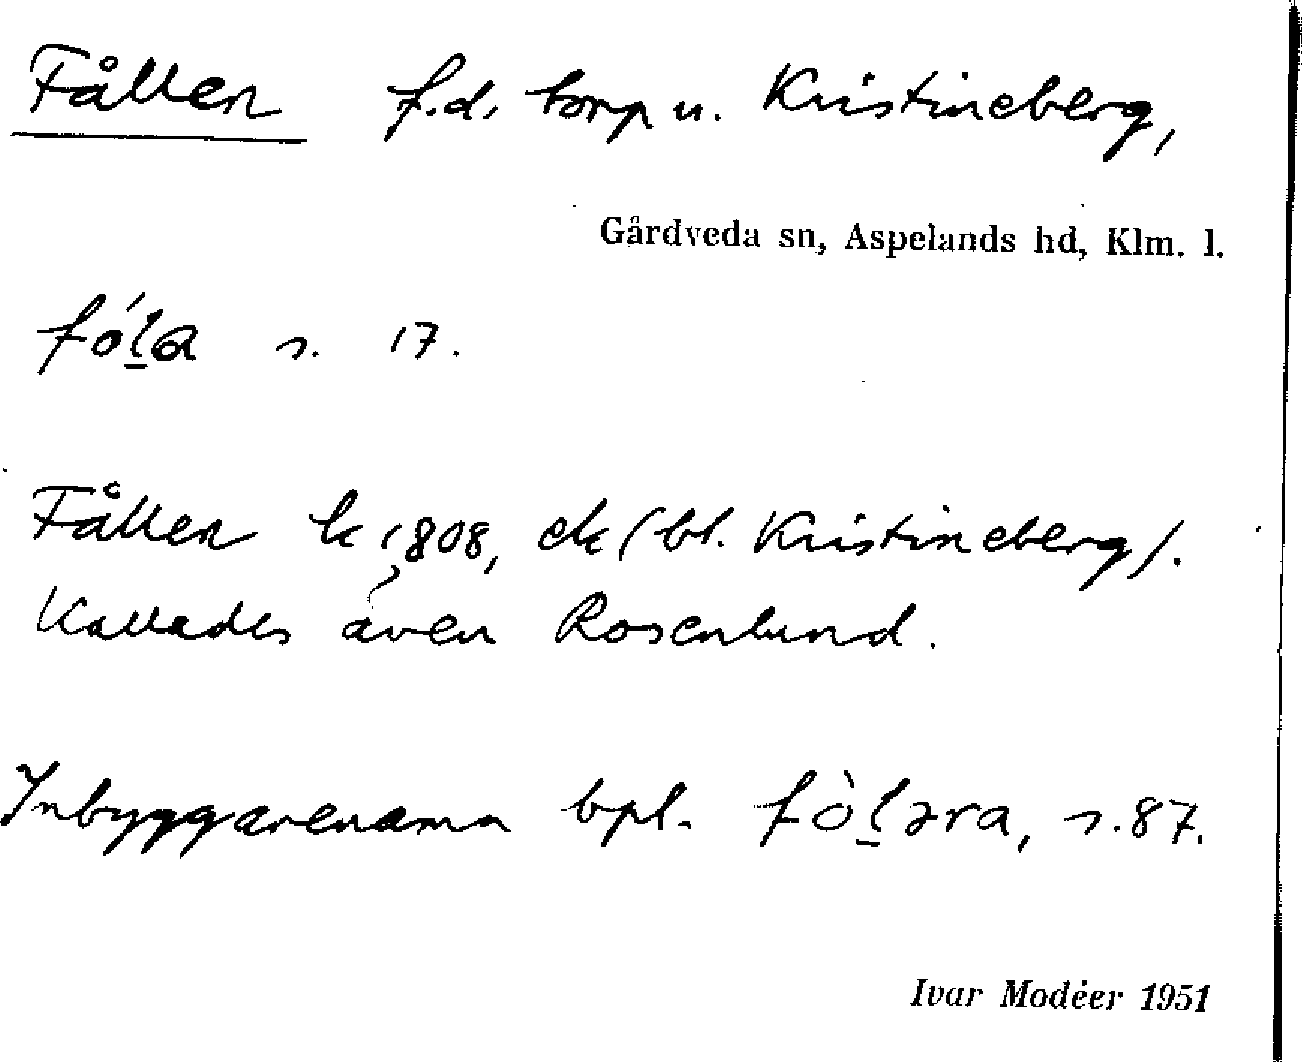 Fållen f.d. torp u. Kristineberg,
Gårdveda sn, Aspelands hd, Klm. l.
fó́l̲a s. 17.
Fållen k 1808, ek (bl. Kristineberg).
Kallades även Rosenlund.
Inbyggarenamn bpl. fòl̲əra, s. 87.
Ivar Modéer 1951